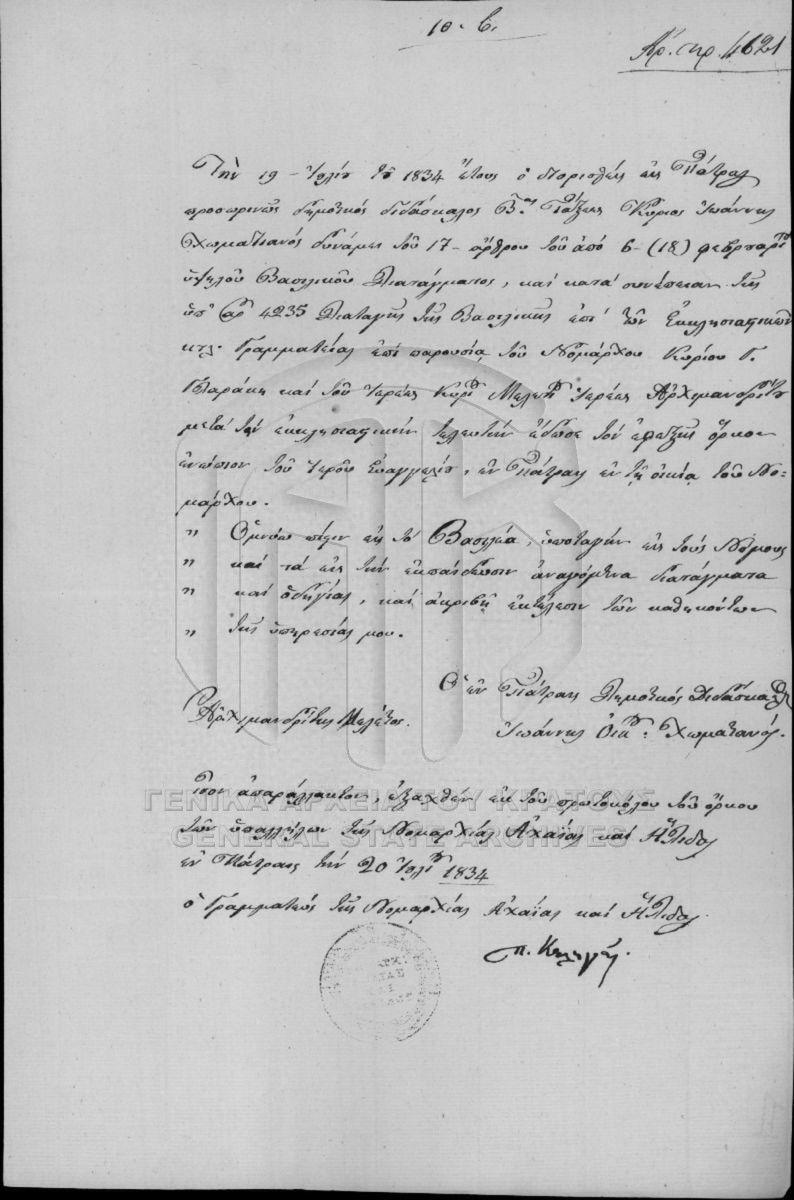 10. β.
Αρ. πρ. 4621
Την 19 Ιουλίου του 1834 έτους ο διορισθείς εις Πάτρας
προσωρινώς δημοτικός διδάσκαλος Βας Τάξεως Κύριος Ιωάννης
Χωματιανός δυνάμει του 17 άρθρου του από 6 (18) φεβρουαρίου
υψηλού Βασιλικού Διατάγματος, και κατά συνέπειαν της
υπ' αρ 4235 Διαταγής της Βασιλικής επί των Εκκλησιαστικών
κτλ. Γραμματείας επί παρουσία του Νομάρχου Κυρίου Γ.
Γλαράκη και του Ιερέως Κυρίου Μελετίου Ιερέως Αρχιμανδρίτου
μετά την εκκλησιαστικήν τελετήν έδωσε τον εφεξής όρκον
ενώπιον του Ιερού Ευαγγελίου, εν Πάτραις εν τη οικία του Νο=
μάρχου.
" Ομνύω πίστιν εις το Βασιλέα, υποταγήν εις τους Νόμους
" και τα εις την εκπαίδευσιν αναγόμενα διατάγματα
" και οδηγίας, και ακριβή εκτέλεσιν των καθηκόντων
" της υπηρεσίας μου.
Ο εν Πάτραις Δημοτικός Διδάσκαλος
Αρχιμανδρίτης Μελέτιος.
Ιωάννης Χωματιανός.
Ίσον απαράλλακτον, εξαχθέν εκ του πρωτοκόλου του όρκου
των υπαλλήλων της Νομαρχίας Αχαΐας και Ήλιδος
εν Πάτραις την 20 Ιουλίου 1834
ο Γραμματεύς της Νομαρχίας Αχαΐας και Ήλιδος.
ΓΕΝΙΚΑ ΑΡΧΕΙΑ ΤΟΥ ΚΡΑΤΟΥΣ
GENERAL STATE ARCHIVES